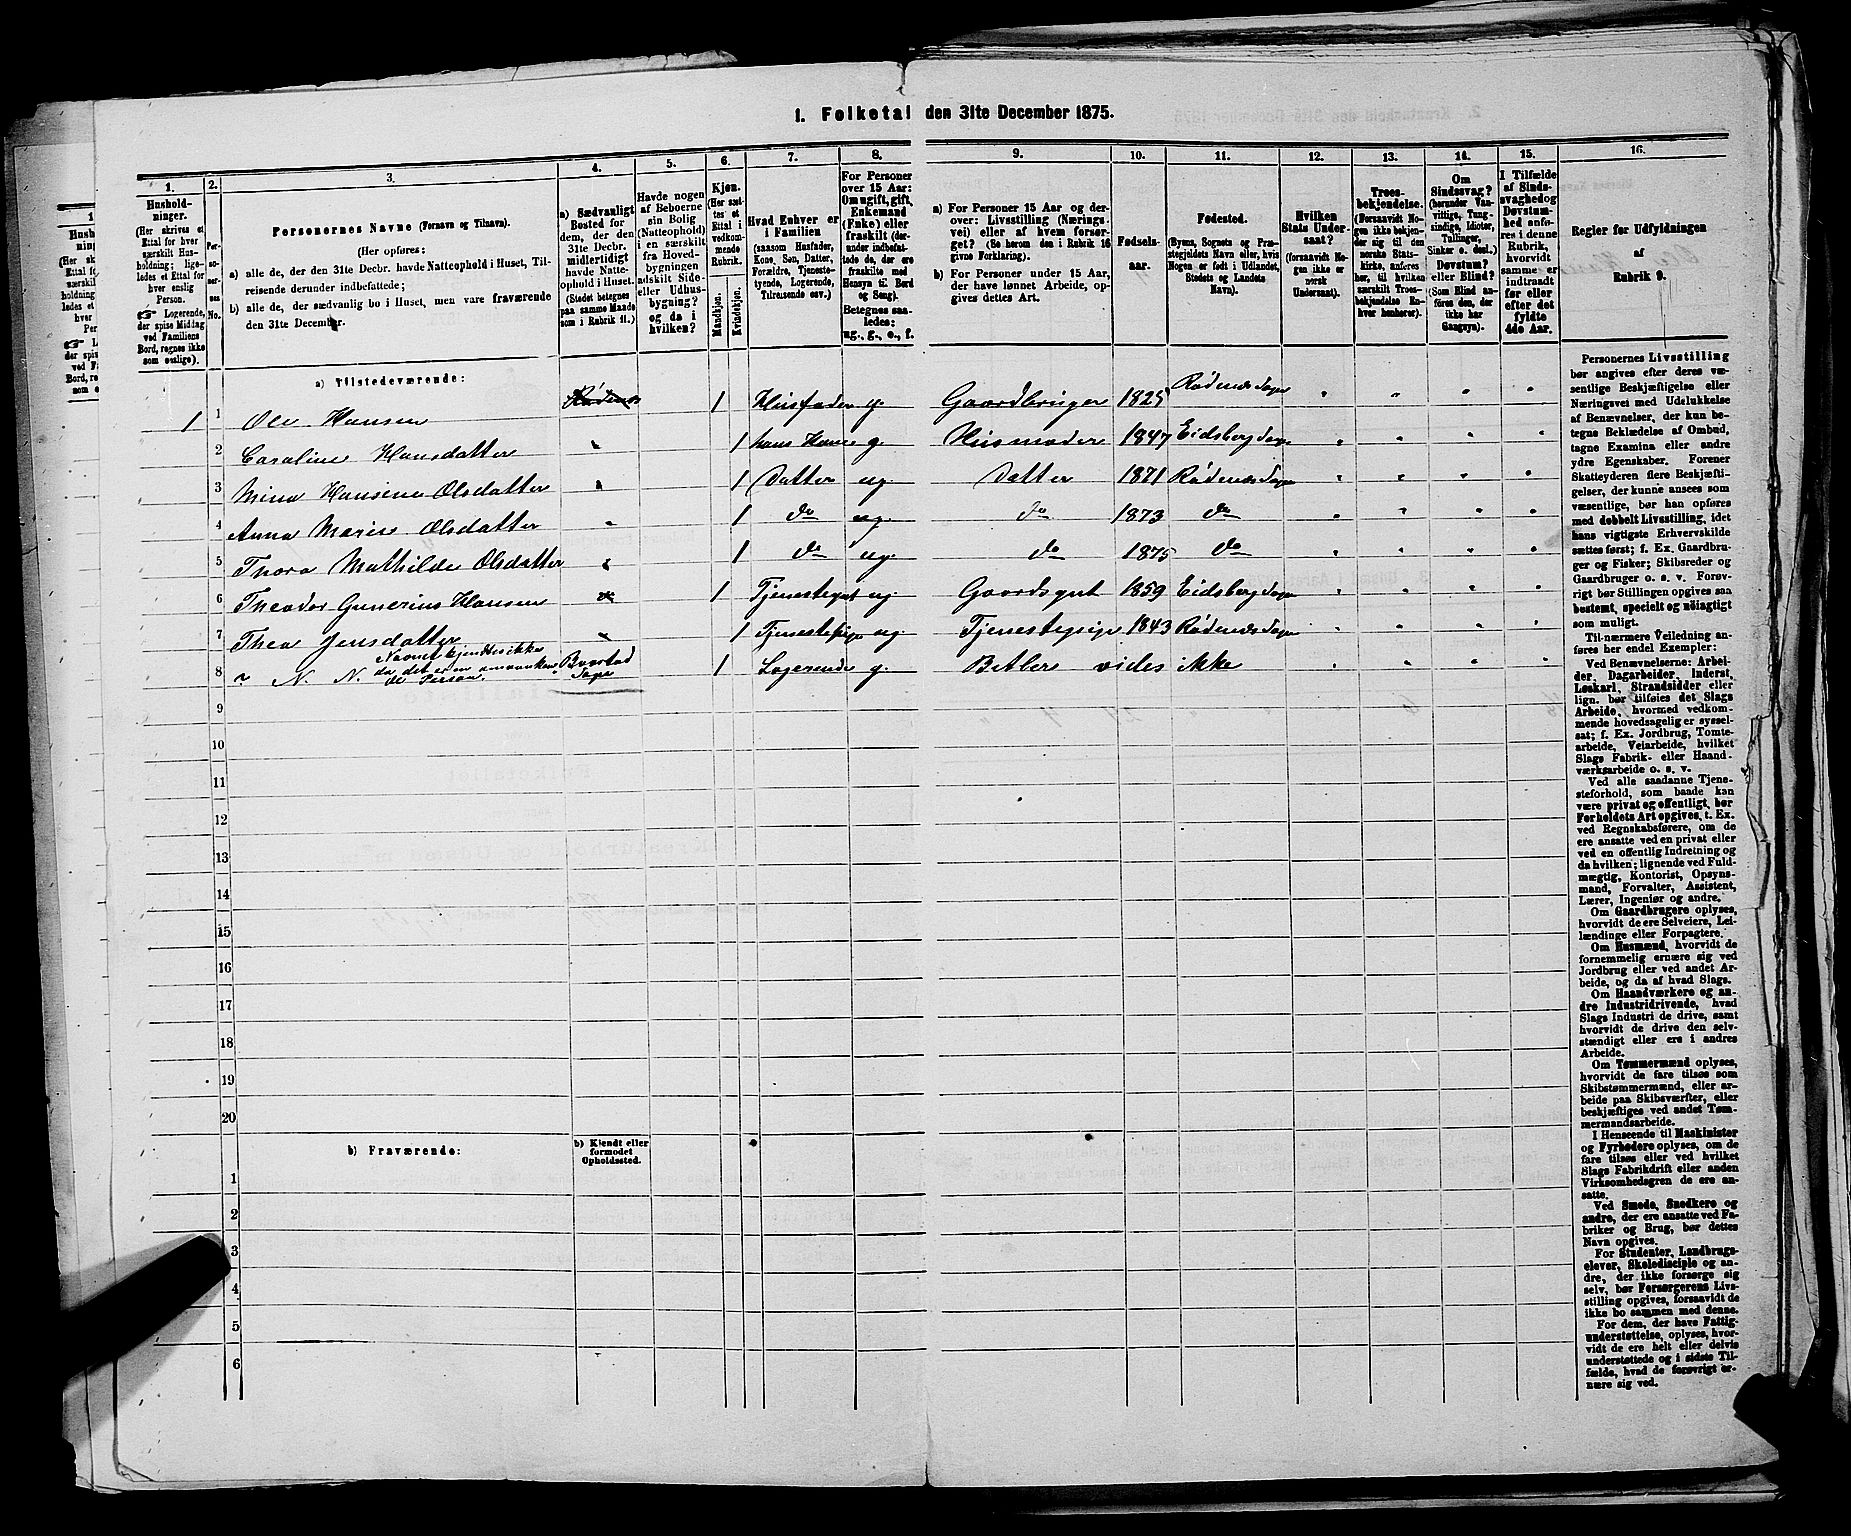 1. Folketal den 31te December 1875.
1. 2. 3. 4. 5. 6. 7. 8. 9. 10. 11. 12. 13. 14. 15. 16.
Hushold-
ninger.
(Her skrives et
Ettal for hver
særskilt Hus-
holdning; lige-
ledes et Ettal
for hver
enslig
Person.
☞ Logerende,
der spise Middag
ved Familiens
Bord, regnes ikke
som enslige).
Per-
so-
ner-
nes
No.
Personernes Navne (Fornavn og Tilnavn).
(Her opføres:
a) alle de, der den 31te Decbr. havde Natteophold i Huset, Til-
reisende derunder indbefattede;
b) alle de, der sædvanlig bo i Huset, men vare fraværende
den 31te December.
a) Sædvanligt
Bosted for
dem, der den
31te Decbr.
midlertidigt
havde Natte-
ophold i Huset.
(Stedet betegnes
paa samme Maade
som i Rubrik 11.)
Havde nogen
af Beboerne
sin Bolig
(Natteophold)
i en særskilt
fra Hoved-
bygningen
adskilt Side-
eller Udhus-
bygning?
og da i
hvilken?
Kjøn.
(Her sæt-
tes et
Ettal i
vedkom-
mende
Rubrik.
Mandkjøn.
Kvindekjøn.
Hvad Enhver er
i Familien
(saasom Husfader,
Kone, Søn, Datter,
Forældre, Tjeneste-
tyende, Logerende,
Tilreisende osv.)
For Personer
over 15 Aar:
Om ugift, gift,
Enkemand
(Enke) eller
fraskilt (der-
under indbefat-
tede de, der ere
fraskilte med
Hensyn til Bord
og Seng).
Betegnes saa-
ledes:
ug., g., e., f.
a) For Personer 15 Aar og der-
over: Livsstilling (Nærings-
vei) eller af hvem forsør-
get? (Se herom den i Rubrik 16
givne Forklaring).
b) For Personer under 15 Aar,
der have lønnet Arbeide, op-
gives dettes Art.
Fødsels-
aar.
Fødested.
(Byens, Sognets og Præ-
stegjeldets Navn eller, hvis
Nogen er født i Udlandet,
Stedets og Landets
Navn).
Hvilken
Stats Under-
saat?
(forsaavidt No-
gen ikke er
norsk
Undersaat).
Troes-
bekjendelse.
(Forsaavidt No-
gen ikke bekjen-
der sig til den
norske Stats-
kirke, anføres
her, til hvilket
særskilt Troes-
bekjendelse En-
hver henhører).
Om
Sindssvag?
(herunder Van-
vittige, Tung-
sindige, Idioter,
Tullinger,
Sinker o. desl.).
Døvstum?
eller Blind?
(Som Blind an-
føres den, der
ikke har
Gangsyn).
I Tilfælde
af Sinds-
svaghed og
Døvstum-
hed anfø-
res i denne
Rubrik,
hvorvidt
samme er
indtraadt
før eller
efter det
fyldte
4de Aar.
Regler for Udfyldningen
af
Rubrik 9.
a) Tilstedeværende:
1 1 Ole Hansen Rødenes 1 Husfader g. Gaardbruger 1825 Rødenes Sogn " " " "
2 Caroline Hansdatter " 1 hans Kone g. Husmoder 1847 Eidsberg Sogn " " " "
3 Mina Hansena Olsdatter " 1 Datter ug. Datter 1871 Rødenes Sogn " " " "
4 Anna Marie Olsdatter " 1 do ug. do 1873 do " " " "
5 Thora Mathilde Olsdatter " 1 do ug. do 1875 do " " " "
6 Theodor Gunerius Hansen " 1 Tjenestegut ug. Gaardsgut 1859 Eidsberg Sogn " " " "
7 Thea Jensdatter " 1 Tjenestepige ug. Tjenestepige 1843 Rødenes Sogn " " " "
8 N. N. Navnet kjendtes ikke da det er en omvankende Person. Sogn 1 Logerende g. Betler vides ikke " " "
9
10
11
12
13
14
15
16
17
18
19
20
b) Fraværende: b) Kjendt eller
formodet
Opholdssted.
1
2
3
4
5
6
Personernes Livsstilling
bør angives efter deres væ-
sentlige Beskjæftigelse eller
Næringsvei med Udelukkelse
af Benævnelser, der kun be-
tegne Beklædelse af Ombud,
tagne Examina eller andre
ydre Egenskaber. Forener
Skatteyderen flere Beskjæfti-
gelser, der kunne ansees som
væsentlige, bør han opføres
med dobbelt Livsstilling, idet
hans vigtigste Erhvervskilde
sættes først; f. Ex. Gaardbru-
ger og Fisker; Skibsreder og
Gaardbruger o. s. v. Forøv-
rigt bør Stillingen opgives saa
bestemt, specielt og nøiagtigt
som muligt.
Til nærmere Veiledning an-
føres her endel Exempler:
Ved Benævnelserne: Arbei-
der, Dagarbeider, Inderst,
Løskarl, Strandsidder eller
lign. bør tilføies det Slags
Arbeide, hvormed vedkom-
mende hovedsagelig er syssel-
sat; f. Ex. Jordbrug, Tomte-
arbeide, Veiarbeide, hvilket
Slags Fabrik- eller Haand-
værksarbeide o. s. v.
Ved alle saadanne Tjene-
steforhold, som baade kan
være privat og offentligt, bør
Forholdets Art opgives, t. Ex.
ved Regnskabsførere, om de
ere ansatte ved en privat eller
ved en offentlig Indretning og
da hvilken; lignende ved Fuld-
mægtig, Kontorist, Opsyns-
mand, Forvalter, Assistent,
Lærer, Ingeniør og andre.
Om Gaardbrugere oplyses,
hvorvidt de ere Selveiere, Lei-
lændinge eller Forpagtere.
Om Husmænd, hvorvidt de
fornemmelig ernære sig ved
Jordbrug eller ved andet Ar-
beide, og da af hvad Slags.
Om Haandværkere og an-
dre Industridrivende, hvad
Slags Industri de drive, samt
hvorvidt de drive den selv-
stændigt eller ere i andres
Arbeide.
Om Tømmermænd oplyses,
hvorvidt de fare tilsøs som
Skibstømmermænd, eller ar-
beide paa Skibsværfter, eller
beskjæftiges ved andet Tøm-
mermandsarbeide.
I Henseende til Maskinister
og Fyrbødere oplyses, om de
fare tilsøs eller ved hvilket
Slags Fabrikdrift eller anden
Virksomhedsgren de ere an-
satte.
Ved Smede, Snedkere og
andre, der ere ansatte ved Fa-
briker og Brug, bør dettes
Navn opgives.
For Studenter, Landbrugs-
elever, Skoledisciple og an-
dre, der ikke forsørge sig
selv, bør Forsørgerens Livs-
stilling opgives, forsaavidt de
ikke bo sammen med denne.
For dem, der have Fattig-
understøttelse, oplyses, hvor-
vidt de ere helt eller delvis
understøttede og i sidste Til-
fælde, hvad de forøvrigt er-
nære sig ved.